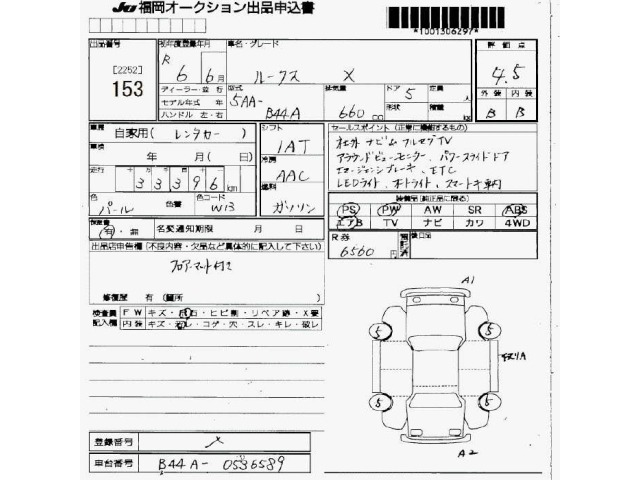 JU 福岡オークション出品申込書
*1001306297*
出品番号
[2252]
153
初年度登録年月
R 6 年 6 月
車名・グレード
ルークス X
評価点
4.5
外装 内装
B B
ディーラー・並行
モデル年式 年
ハンドル 左・右
型式
5AA-
B44A
排気量
660 cc
ドア
5
形状
定員
人
積載
kg
車歴
自家用 ( レンタカー )
車検
年 月 ( 日 )
走行
33396 km
シフト
IAT
冷房
AAC
燃料
ガソリン
色
パール
色替
色コード
W13
セールスポイント (正常に機能するもの)
社外ナビ フルセグTV
アラウンドビューモニター、パワースライドドア
エマージェンシーブレーキ、ETC
LEDライト、オートライト、スマートキー
装備品 (純正品に限る)
PS PW AW SR ABS
エアB TV ナビ カワ 4WD
有・無
名変通知期限 月 日
R券
6560 円
後日品
出品店申告欄 (不良内容・欠品など具体的に記入して下さい)
フロアマット付き
修復歴 有 (箇所 )
検査員
記入欄
FW キズ・飛石・ヒビ割・リペア跡・X要
内装 キズ・汚レ・コゲ・穴・スレ・キレ・破レ
A1
5 5
5 5
A2
登録番号
X
車台番号
B44A-0536589